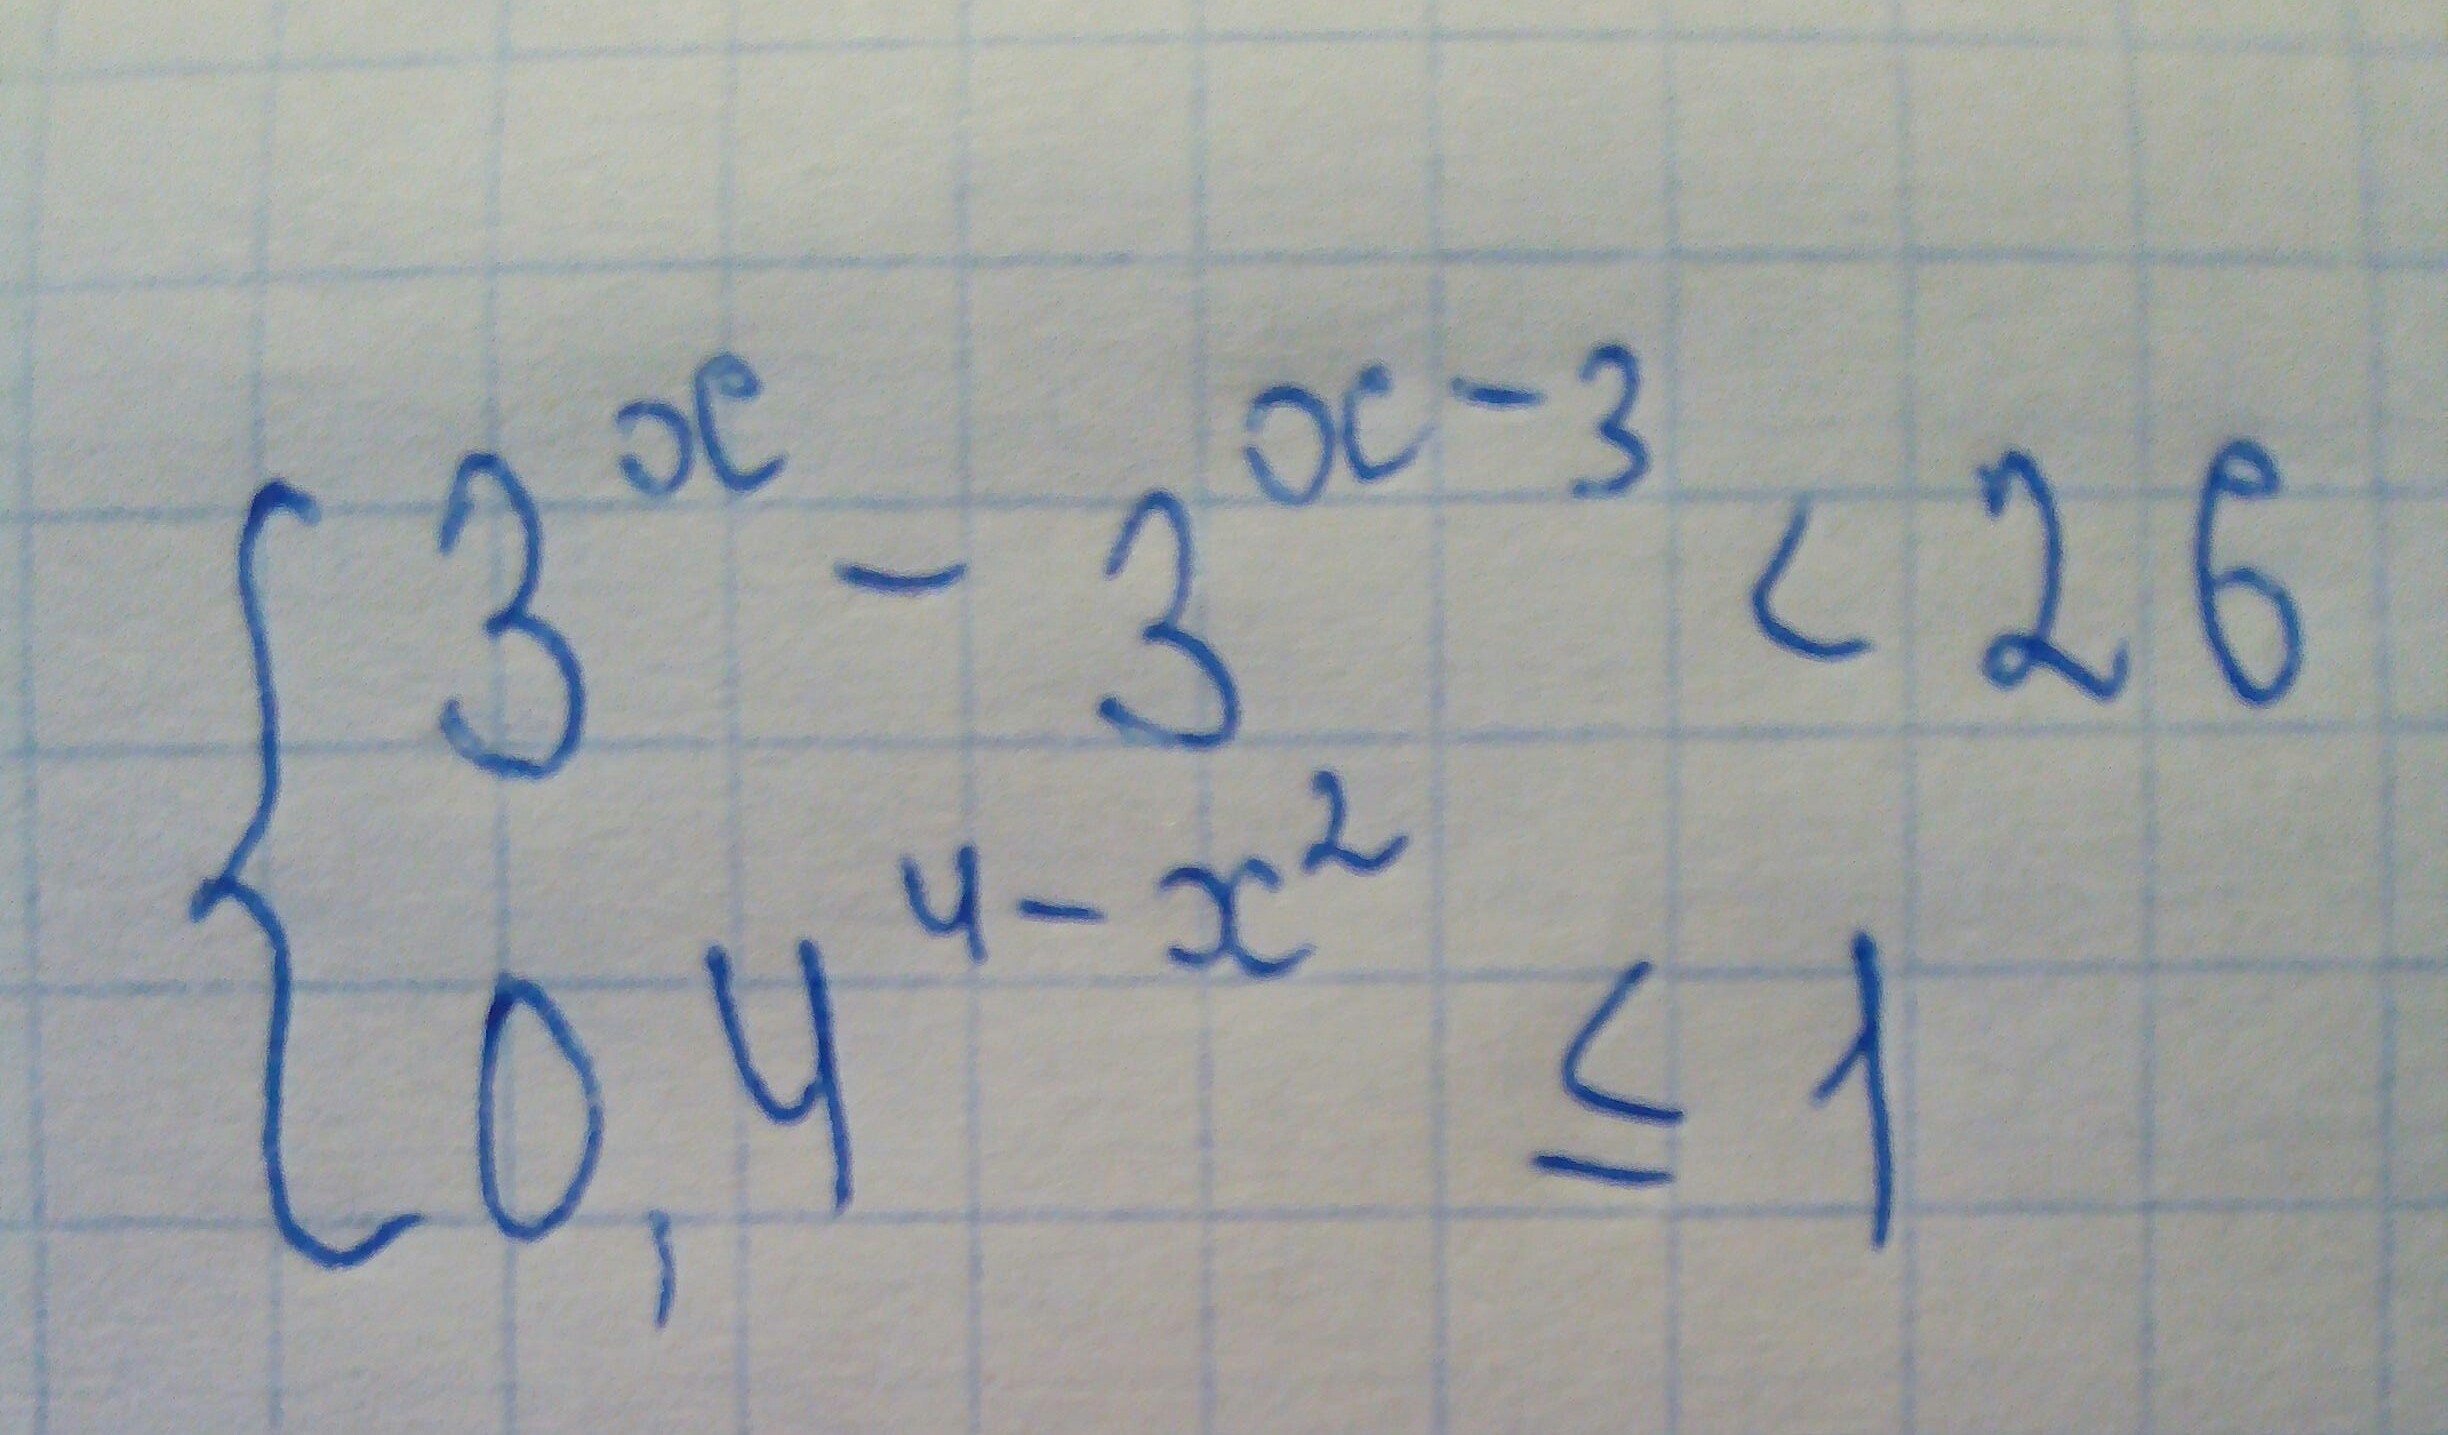 3^x - 3^{x-3} < 26
0,4^{4-x^2} ≤ 1